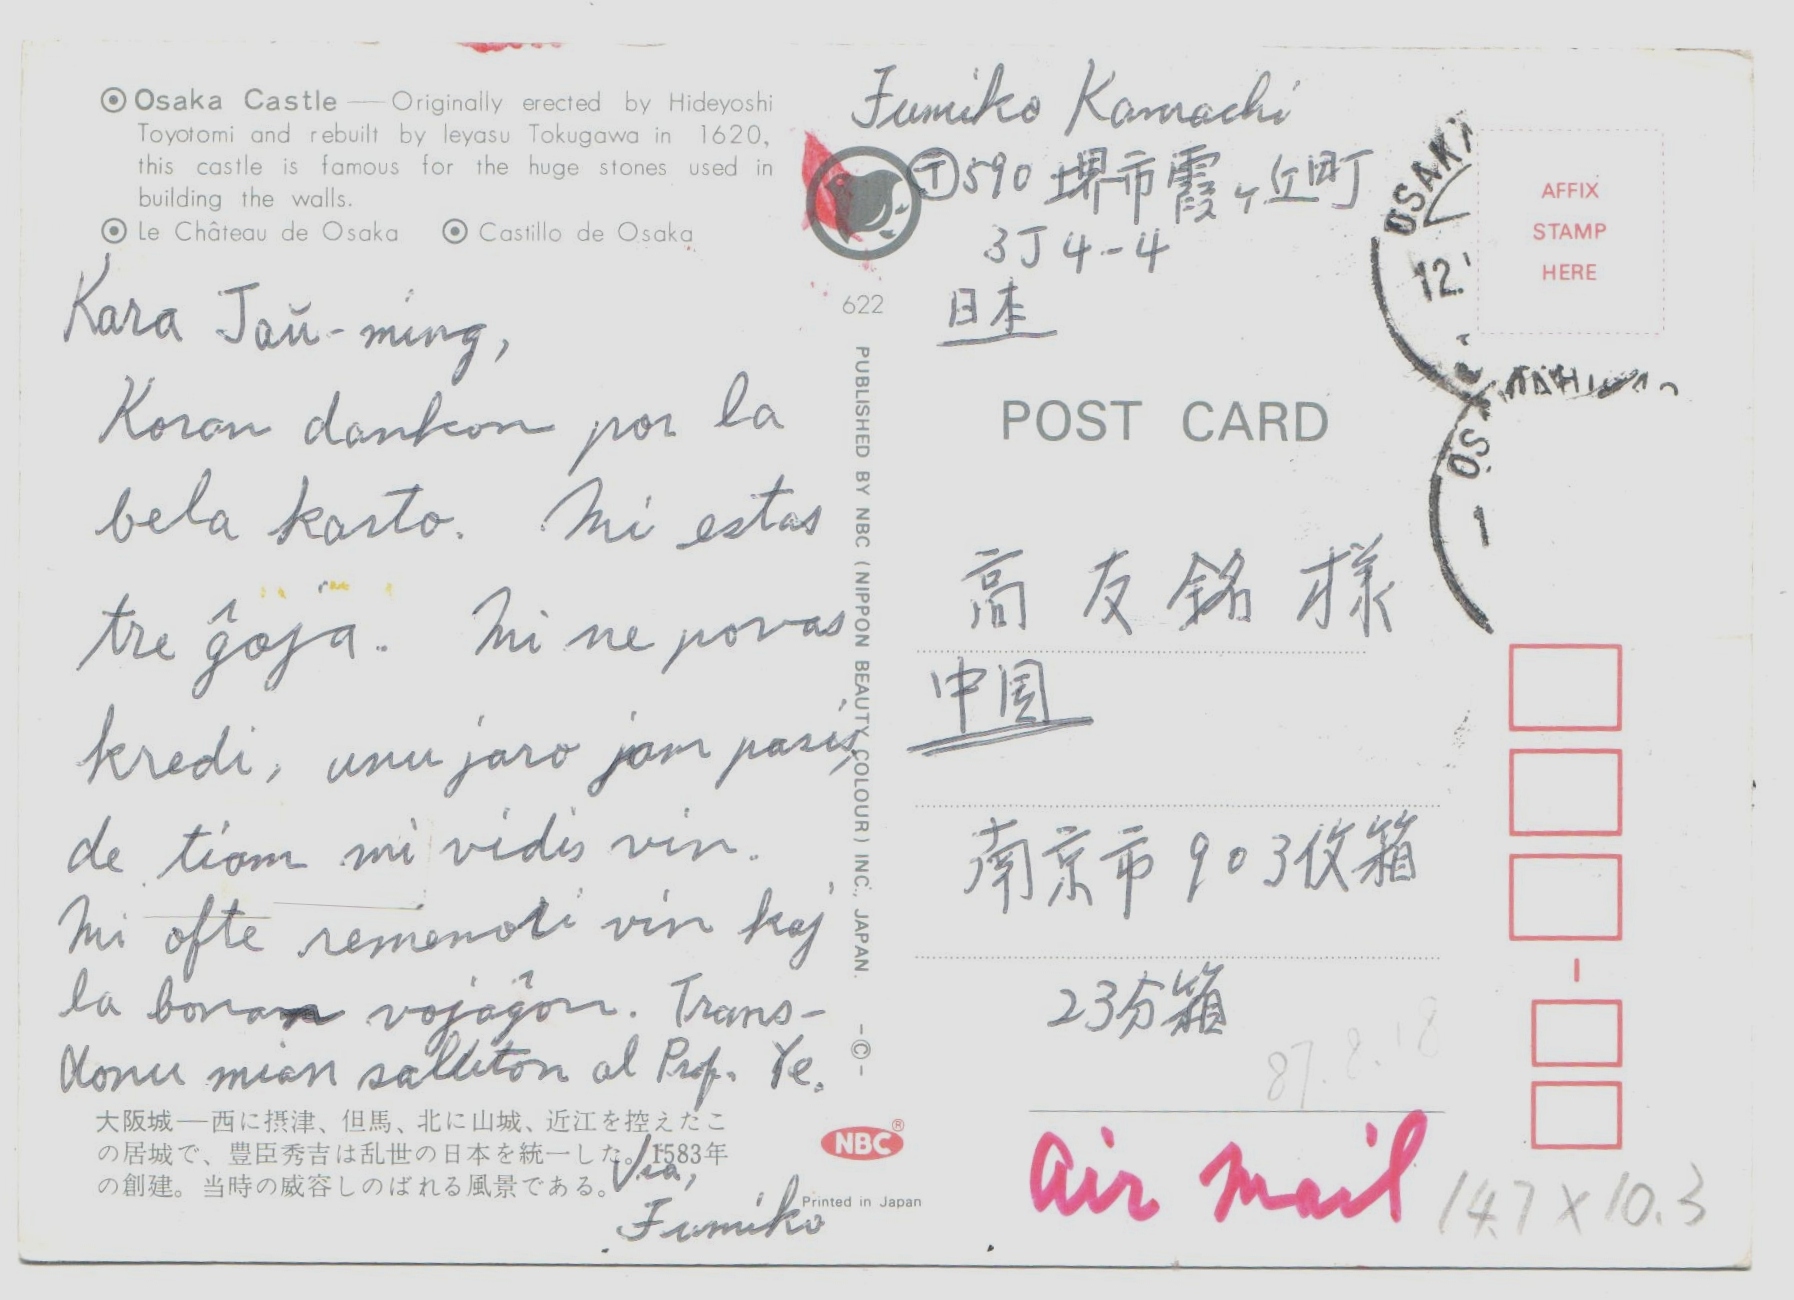 Osaka Castle — Originally erected by Hideyoshi
Toyotomi and rebuilt by Ieyasu Tokugawa in 1620,
this castle is famous for the huge stones used in
building the walls.
Le Château de Osaka Castillo de Osaka
Kara Jaŭ-ming,
Koran dankon por la
bela karto. Mi estas
tre ĝoja. Mi ne povas
kredi, unu jaro jam pasis,
de tiam mi vidis vin.
Mi ofte rememoti vin kaj
la bonan vojaĝon. Trans-
donu mian saluton al Prof. Ye.
Via,
Fumiko
大阪城—西に摂津、但馬、北に山城、近江を控えたこ
の居城で、豊臣秀吉は乱世の日本を統一した。1583年
の創建。当時の威容しのばれる風景である。
622
PUBLISHED BY NBC (NIPPON BEAUTY COLOUR) INC., JAPAN. -©-
NBC®
Printed in Japan
Fumiko Kamachi
〒590 堺市霞ヶ丘町
3丁4-4
日本
OSAKA
12.
OS
1
AFFIX
STAMP
HERE
POST CARD
高友銘様
中国
南京市903信箱
23分箱
87.8.18
air mail
14.7×10.3